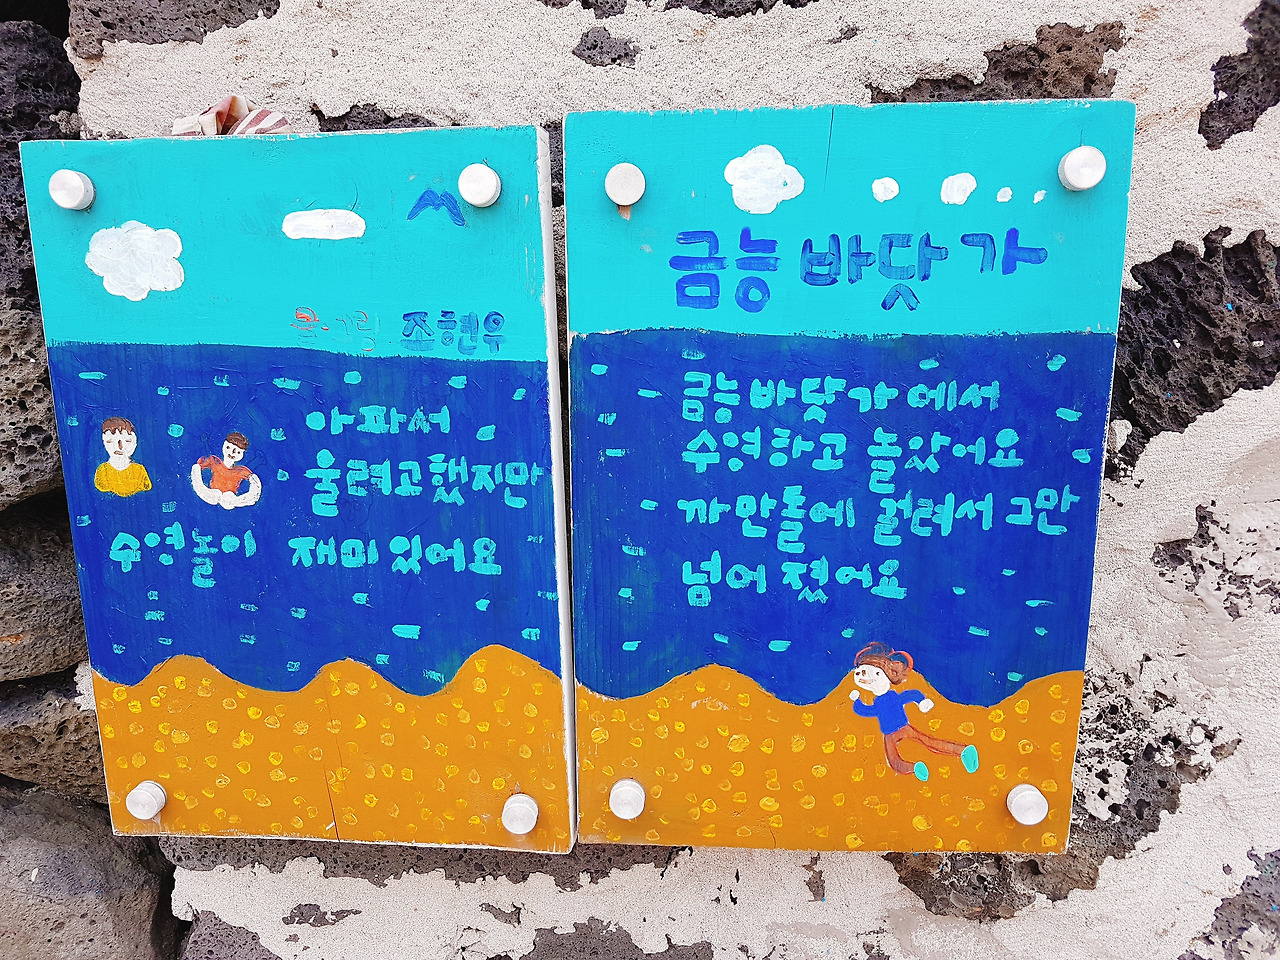 금능 바닷가
금능 바닷가에서
수영하고 놀았어요
까만돌에 걸려서 그만
넘어졌어요
글·그림 조현우
아파서
울려고했지만
수영놀이 재미있어요